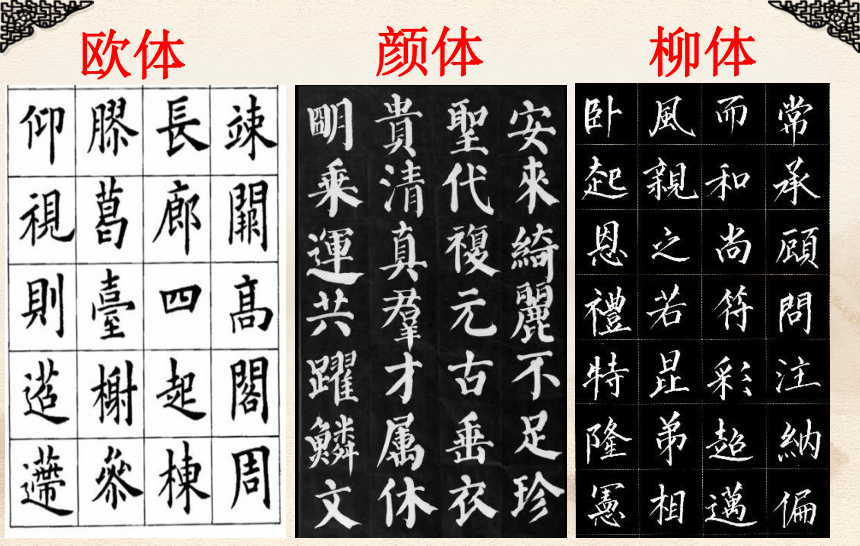 欧体
竦闕高閣周
長廊四起棟
膠葛臺榭參
仰視則迢遰
颜体
安來綺麗不足珍
聖代複元古垂衣
貴清真羣才属休
明乘運共躍鱗文
柳体
常承顧問注納偏
而和尚符彩超邁
風親之若昆弟相
卧起恩禮特隆憲